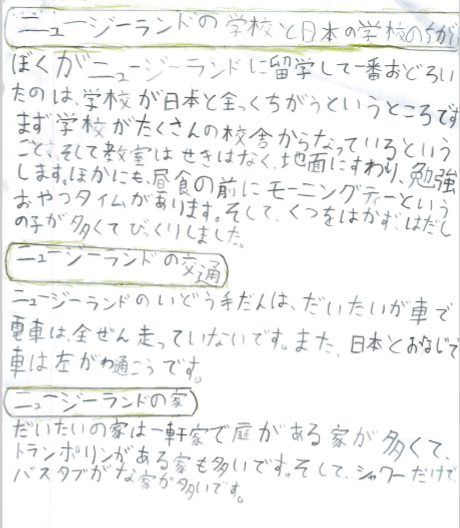 ニュージーランドの学校と日本の学校のちが
ぼくがニュージーランドに留学して一番おどろい
たのは、学校が日本と全っくちがうというところです
まず学校がたくさんの校舎からなっているという
こと、そして教室はせきはなく、地面にすわり、勉強
します。ほかにも、昼食の前にモーニングティーという
おやつタイムがあります。そして、くつをはかず、はだし
の子が多くてびっくりしました。
ニュージーランドの交通
ニュージーランドのいどう手だんは、だいたいが車で
電車は、全ぜん走っていないです。また、日本とおなじで
車は左がわ通こうです。
ニュージーランドの家
だいたいの家は一軒家で庭がある家が多くて、
トランポリンがある家も多いです。そして、シャワーだけで、
バスタブがな家が多いです。